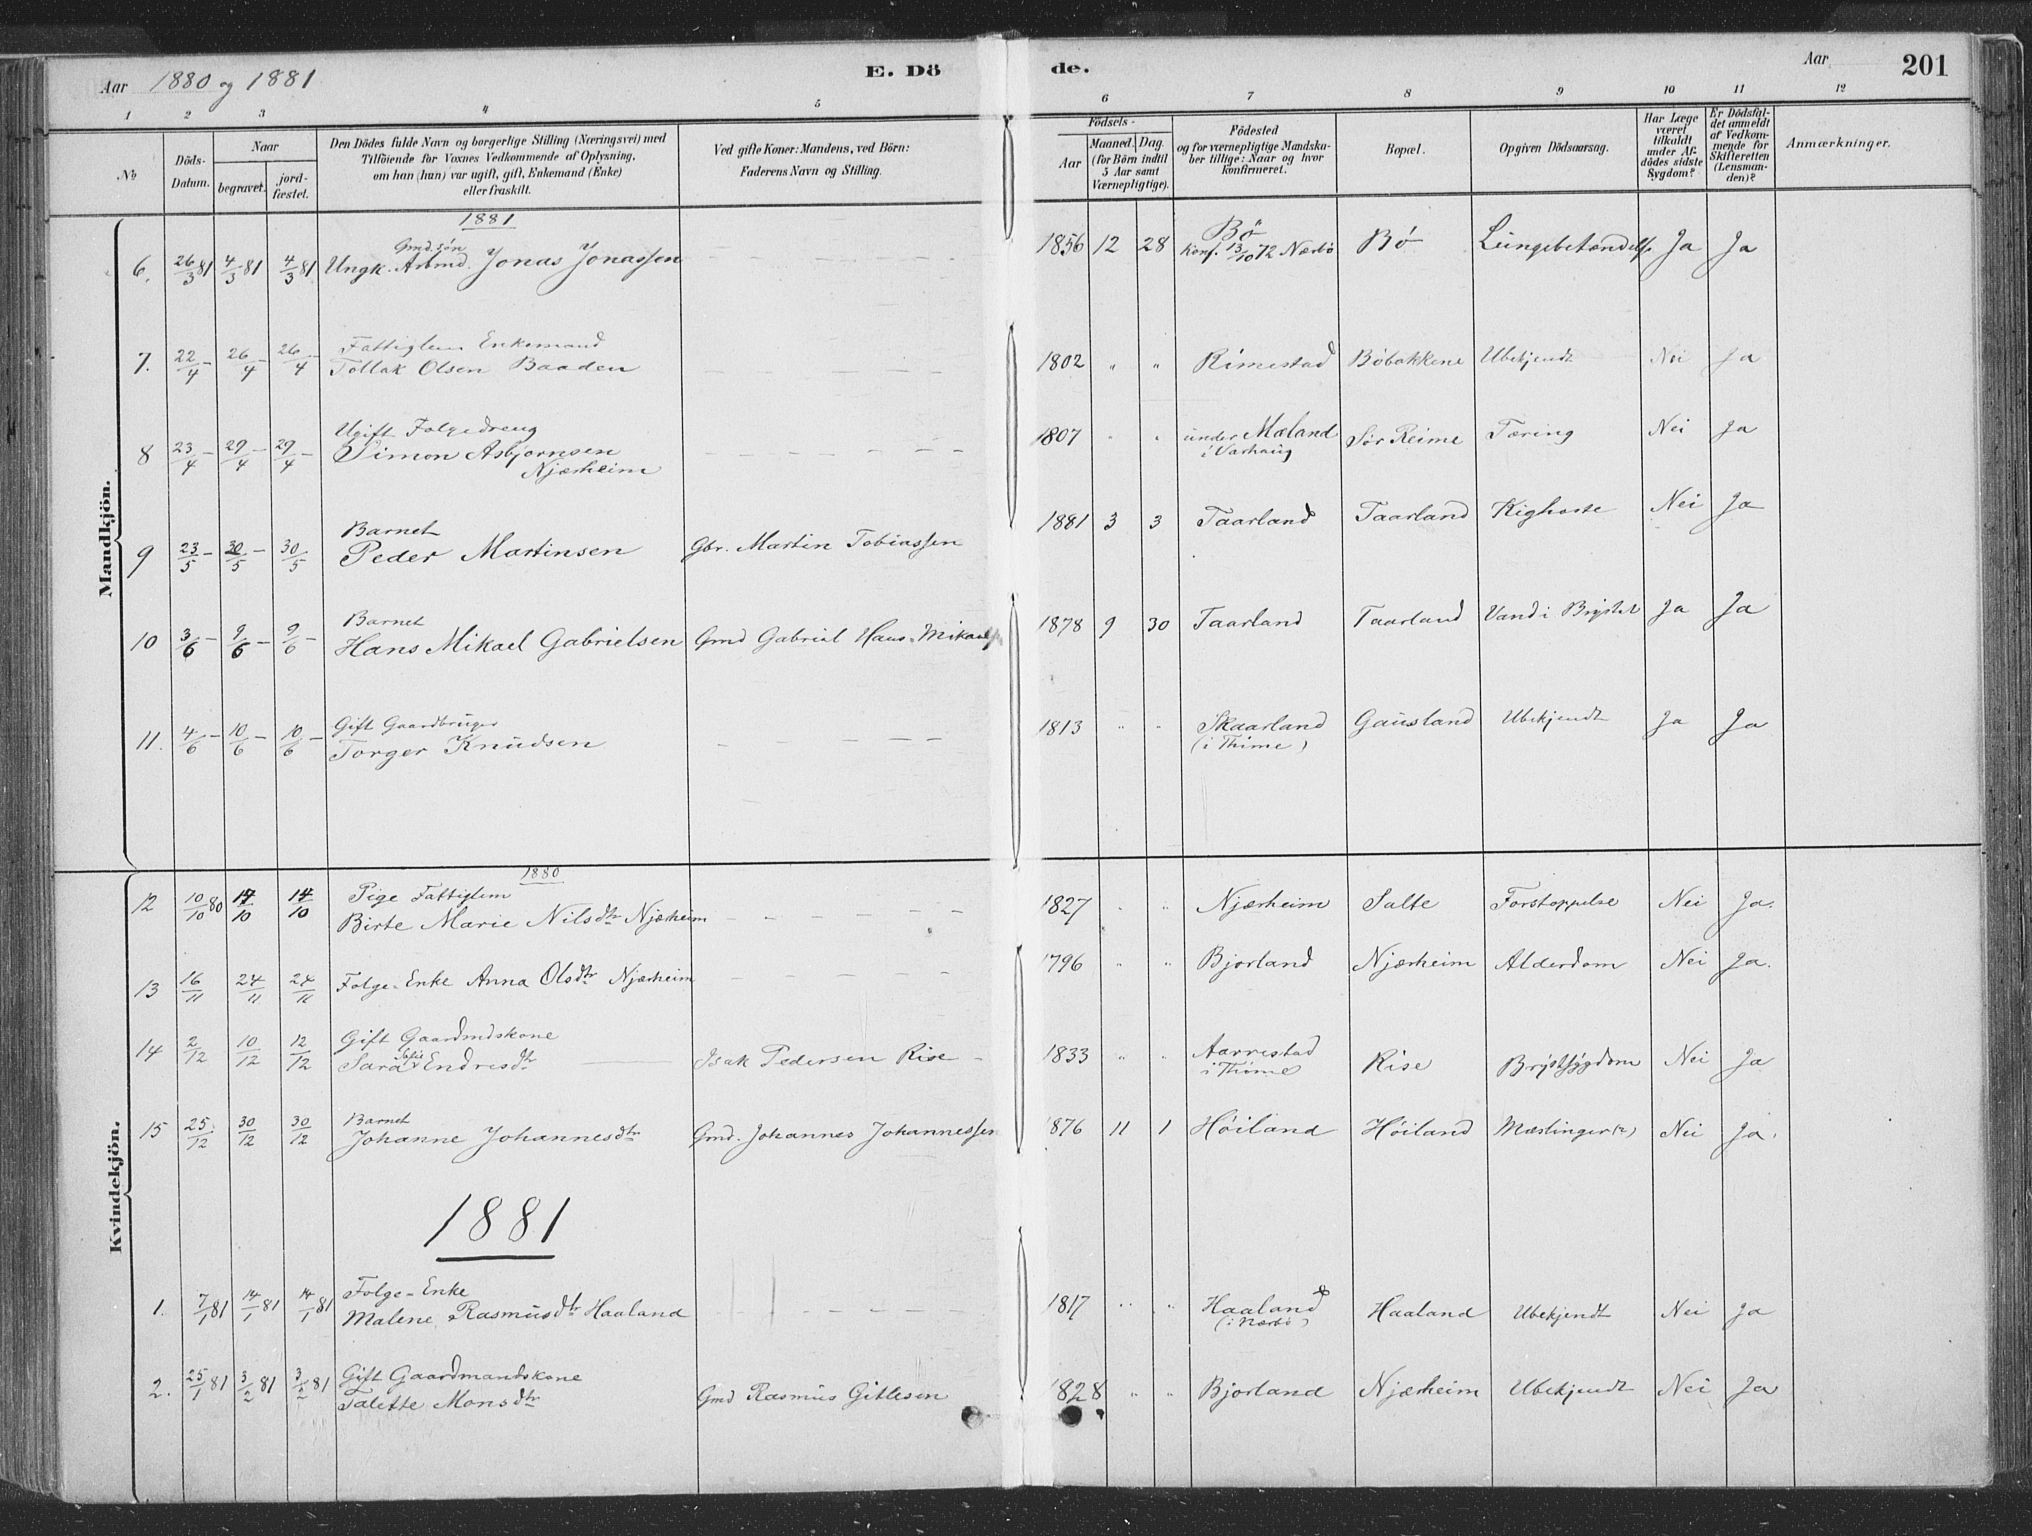 Aar 1880 og 1881 E. Dö de. Aar 201
1 2 3 4 5 6 7 8 9 10 11 12
№ Döds-Datum. Naar begravet. jordfæstet. Den Dödes fulde Navn og borgerlige Stilling (Næringsvei) med Tilföiende for Voxnes Vedkommende af Oplysning, om han (hun) var ugift, gift, Enkemand (Enke) eller fraskilt. Ved gifte Koner: Mandens, ved Börn: Faderens Navn og Stilling. Födsels- Aar Maaned. Dag. (for Börn indtil 5 Aar samt Værnepligtige). Födested og for værnepligtige Mandskaber tillige: Naar og hvor konfirmeret. Bopæl. Opgiven Dödsaarsag. Har Læge været tilkaldt under Afdödes sidste Sygdom? Er Dödsfaldet anmeldt af Vedkommende for Skifteretten (Lensmanden)? Anmærkninger.
Mandkjön.
1881
6. 26/3 81 4/3 81 4/3 81 Gmd.søn Ungk. Arbmd. Jonas Jonassen 1856 12 28 Bö Konf. 13/10 72 Nærbö Bö Lungebetændelse Ja Ja
7. 22/4 - 26/4 - 26/4 - Fattiglem Enkemand
Tollak Olsen Baaden 1802 " " Rimestad Böbakkene Ubekjendt Nei Ja
8 23/4 - 29/4 - 29/4 - Ugift Folgedreng
Simon Asbjornsen
Njærheim 1807 " " under Mæland i Varhaug Sör Reime Tæring Nei Ja
9 23/5 - 30/5 - 30/5 Barnet
Peder Martinsen Gbr. Martin Tobiassen 1881 3 3 Taarland Taarland Kighoste Nei Ja
10 3/6 - 9/6 - 9/6 - Barnet
Hans Mikael Gabrielsen Gmd Gabriel Hans-Mikaels 1878 9 30 Taarland Taarland Vand i Brystet Ja Ja
11. 4/6 - 10/6 - 10/6 - Gift Gaardbruger
Torger Knudsen 1813 " " Skaarland (i Thime) Gausland Ubekjendt Ja Ja
Kvindekjön.
1880
12 10/10 80 17/10 17/10 Pige Fattiglem
Birte Marie Nilsdtr Njærheim 1827 " " Njærheim Salte Forstoppelse Nei Ja.
13 16/11 24/11 24/11 Folge-Enke Anna Olsdtr Njærheim 1796 " " Bjorland Njærheim Alderdom Nei Ja.
14 2/12 10/12 12/12 Gift Gaardmdskone
Sara Sofie Endresdtr Isak Pedersen Rise 1833 " " Aarrestad i Thime Rise Brystsygdom Nei Ja
15 25/12 30/12 30/12 Barnet
Johanne Johannesdtr Gmd. Johannes Johannessen 1876 11 1 Höiland Höiland Mæslinger(?) Nei Ja.
1881
1. 7/1 81 14/1 81 14/1 81 Folge-Enke
Malene Rasmusdtr Haaland 1817 " " Haaland (i Nærbö) Haaland Ubekjendt Nei Ja
2. 25/1 81 3/2 81 3/2 81 Gift Gaardmandskone
Talette Monsdtr Gmd Rasmus Gitlesen 1828 " " Bjorland Njærheim Ubekjendt Nei Ja